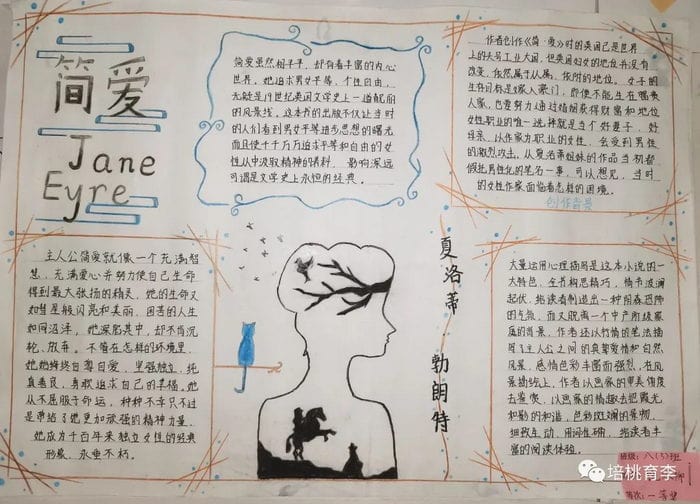 简爱
Jane
Eyre
简爱虽然相貌平平，却有着丰富的内心
世界。她追求男女平等，个性自由，
无疑是19世纪英国文学史上一道靓丽
的风景线。这本书的出版不仅让当时
的人们看到男女平等进步思想的曙光
而且使千千万万追求平等和自由的女
性从中汲取精神的养料，影响深远
可谓是文学史上永恒的经典。
作者创作《简·爱》时的英国已是世界
上的头号工业大国，但英国妇女的地位并没有
改变，依然属于从属、依附的地位，女子的
生存目标是嫁入豪门，即便不能生在富贵
人家，也要努力通过婚姻获得财富和地位
女性职业的唯一选择就是当个好妻子、好
母亲。以作家为职业的女性，会受到男性
的激烈攻击，从夏洛蒂姐妹的作品当初都
假托男性化的笔名一事，可以想见，当时
的女性作家面临着怎样的困境。
创作背景
主人公简爱就像一个充满智
慧，充满爱心并努力使自己生命
得到最大张扬的精灵，她的生命又
如彗星般闪亮和美丽，困苦的人生
如同沼泽，她深陷其中，却不肯沉
沦、放弃。不管在怎样的环境里，
她她始终自尊自爱，坚强独立，纯
真善良，勇敢追求自己的幸福。她
从不屈服于命运，种种不幸只不过
是带给了她更加顽强的精神力量，
她成为千百年来独立女性的经典
形象，永垂不朽。
夏洛蒂
勃朗特
大量运用心理描写是这本小说的一
大特色，全书构思精巧，情节波澜
起伏，给读者制造出一种阴森恐怖
的气氛，而又脱离一个中产阶级家
庭的背景，作者还以行情的笔法描
写了主人公之间的真挚爱情和自然
风景，感情色彩丰富而强烈，在风
景描绘上，作者以画家的审美角度
去鉴赏，以画家的情趣去把霞光
和勒的和谐，色彩斑斓的景物
细致生动，用词准确，给读者丰
富的阅读体验。
班级：八(5)班
等次：一等奖
培桃育李